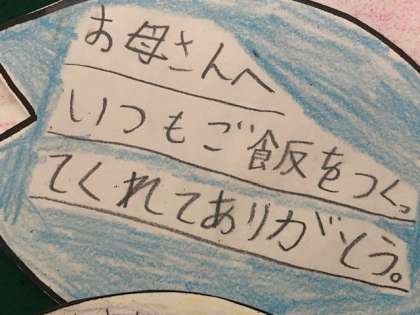 お母さんへ
いつもご飯をつくっ
てくれてありがとう。